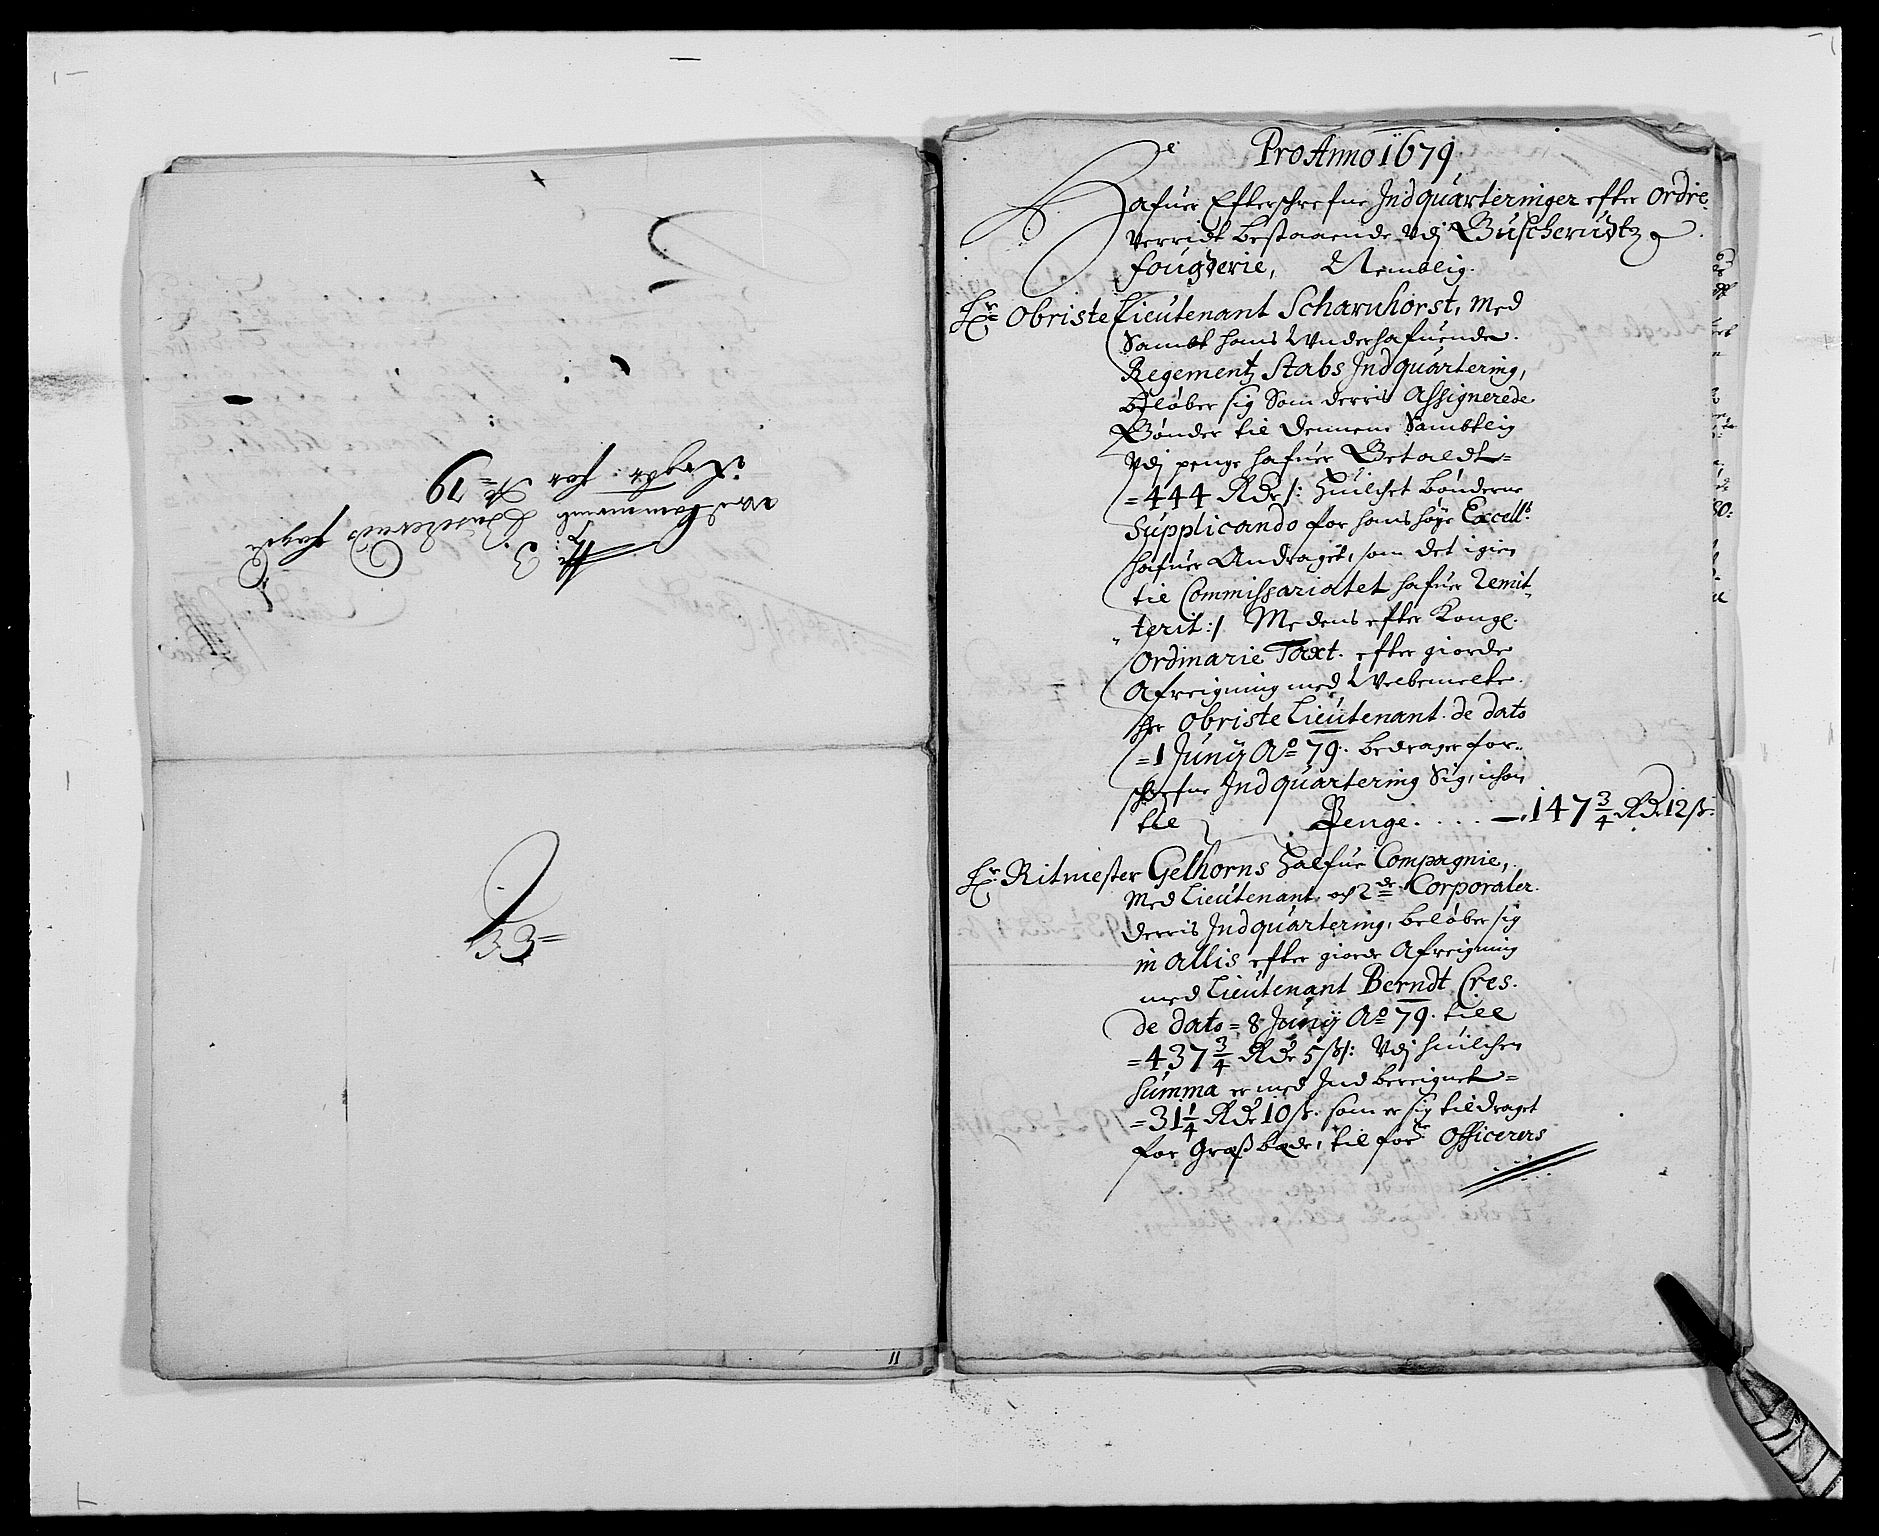 No 3.
Buscheruds fogderie
33
11
Pro Anno 1679
Hafuer Efterschrefne Indquarteringer efter ordre
Verridt bestaaende Vdj Buscherudtz
fougderie, Nemblig.
Hr Obriste Lieutenant Scharnhorst, Med
Sambt hans Vnderhafuende
Regementz Stabs Indquartering,
beløber sig Som derris Assignerede
Bønder til dennem Sambtlig
Vdj penge hafuer Betaldt=
=444 Rdr /: Huilchet bønderne
Supplicando for hans høye Excell:
hafuer Andraget, som det igien
til Commissariatet hafuer Remit¬
terit :/ Medens efter Kongl.
Ordinarie Taxt. efter giorde
Afreigning med Welbemelte
Her Obriste Lieutenant de dato
=1 Junij Ao 79. bedrager for¬
schrefne Indquartering Sig, ichon
til Penge . . . . — 147 3/4 Rdr 12 ß:
Hr Ritmester Gelhorns Halfue Compagnie,
Med Lieutenant, och 2de Corporaler
derris Indquartering, beløber sig
in allis efter giorde Afreigning
med Lieutenant Berndt Cres.
de dato = 8 Junij Ao 79. till
=437 3/4 Rdr 5 ß/: Vdj huilchen
Summa er med Ind bereignet=
=31 1/4 Rdr 10 ß. som er sig tildraget
for Græsbede, til forne Officerers